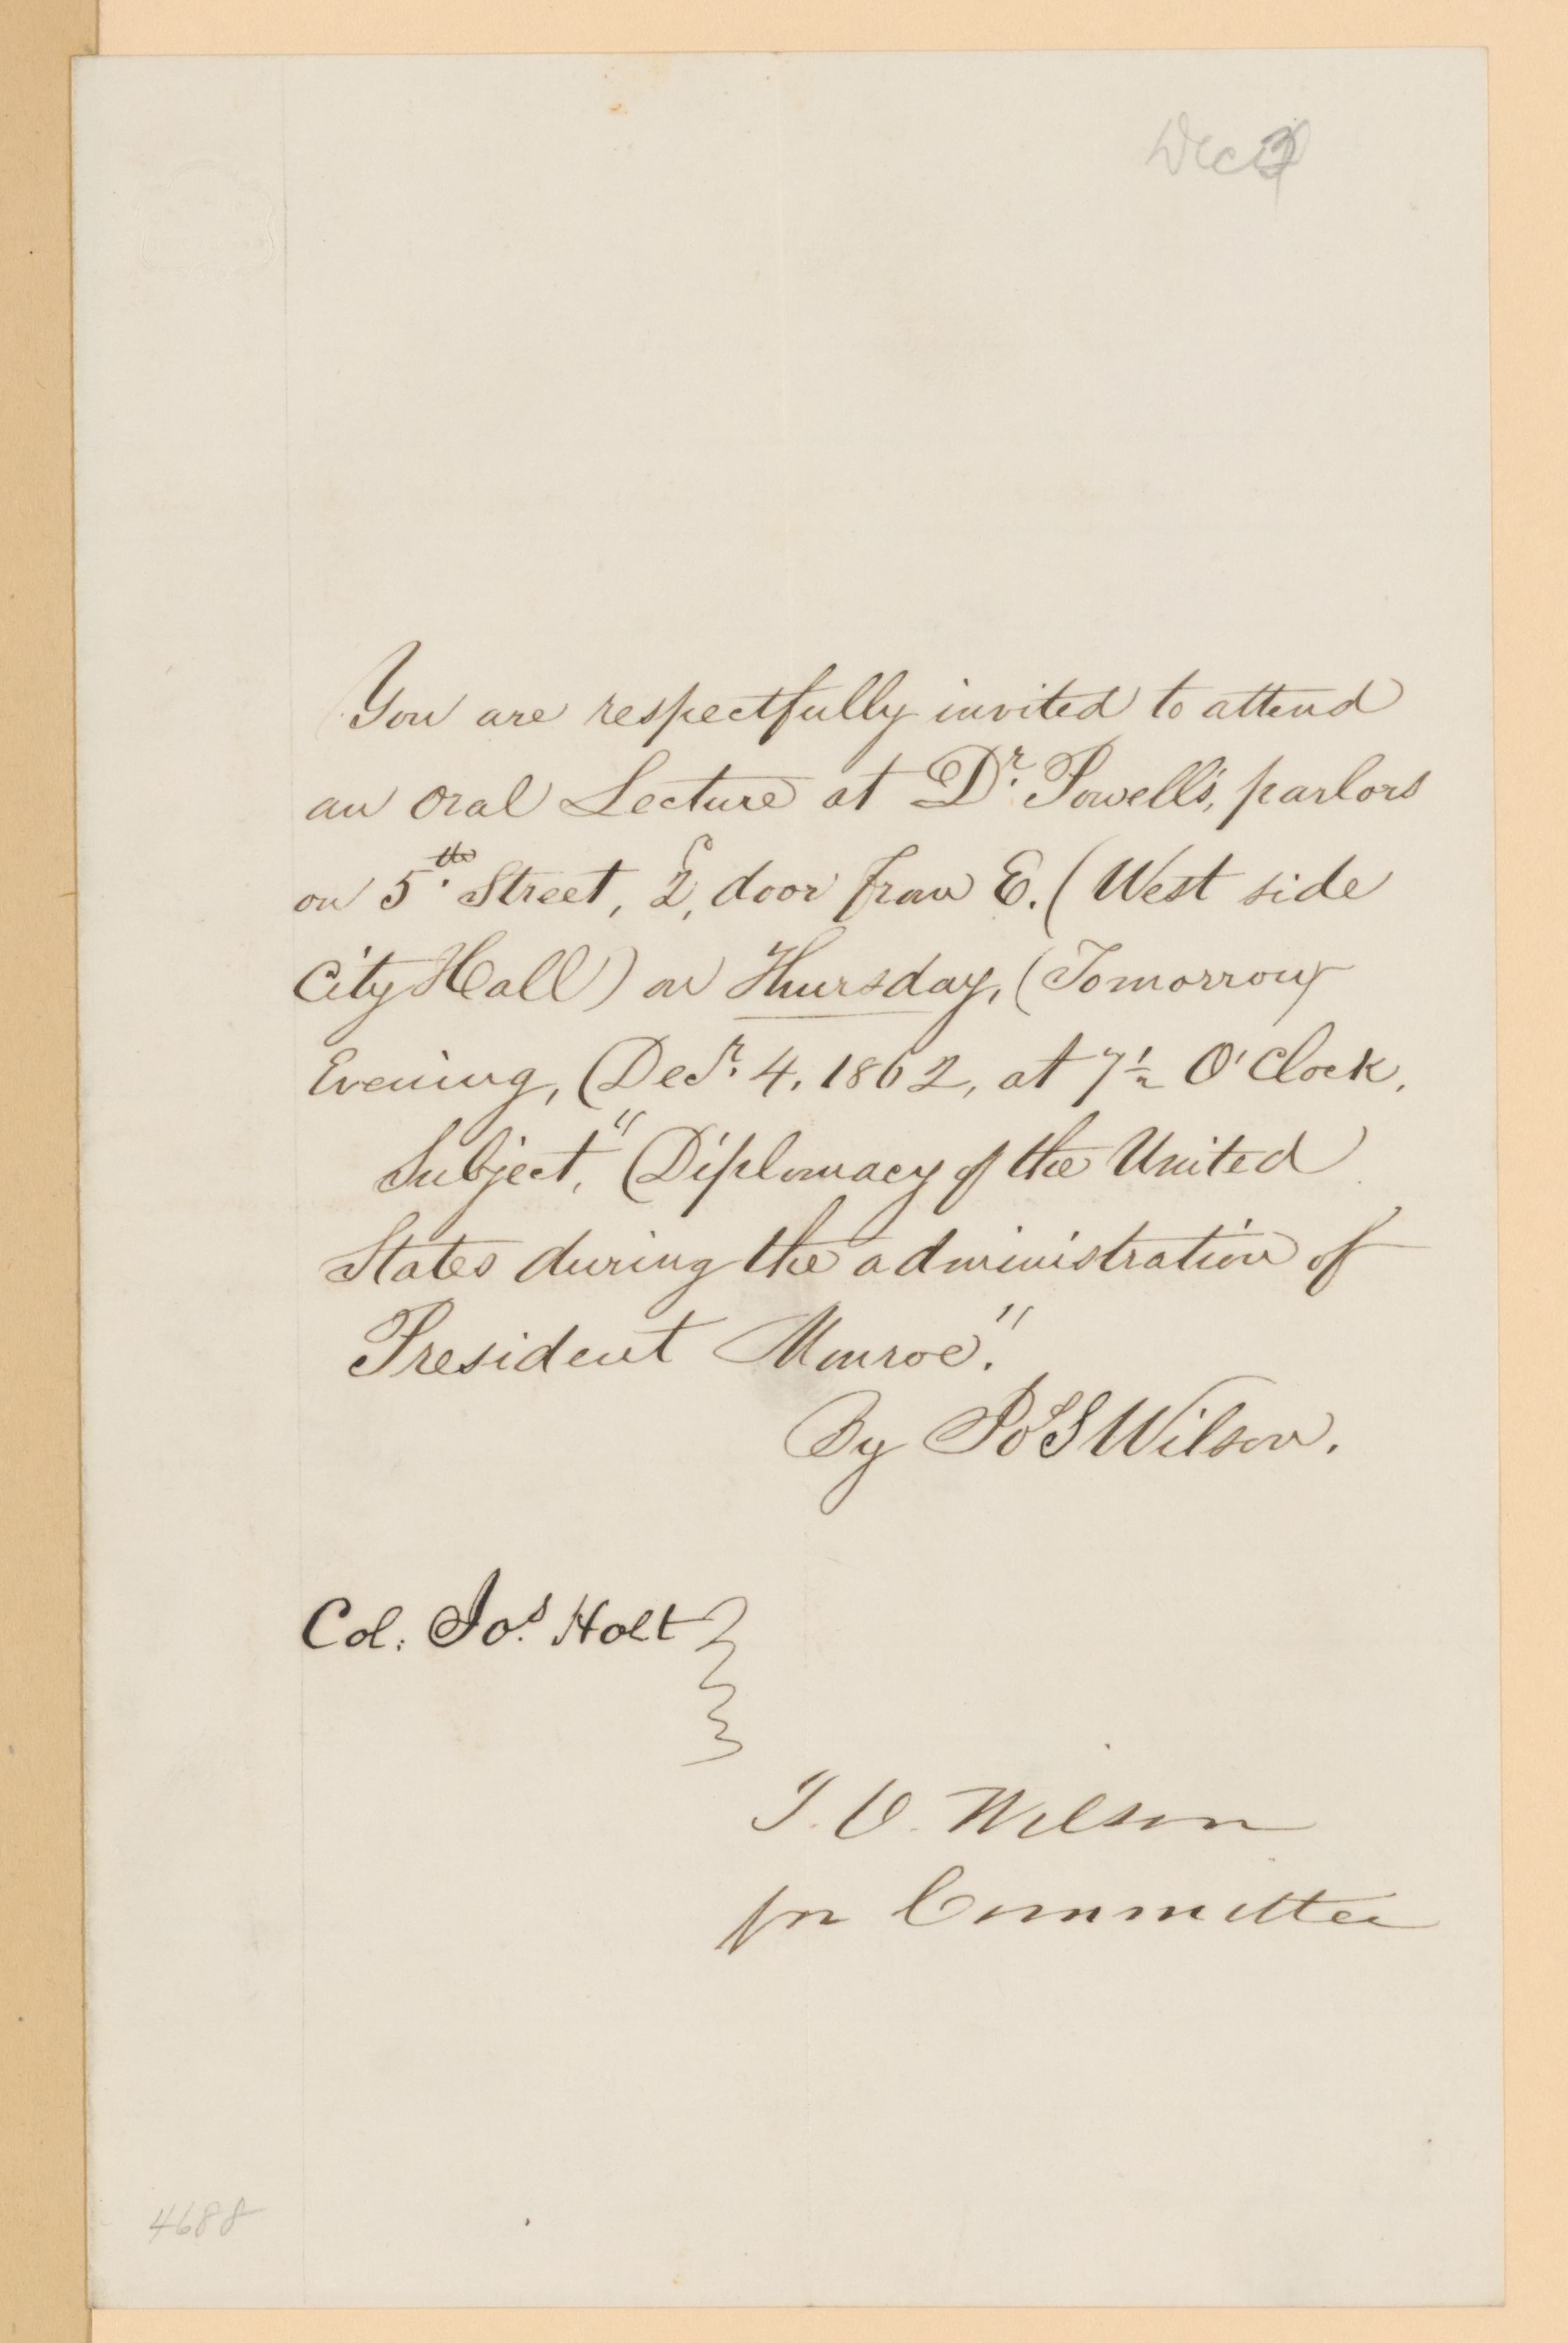 Dec 3
You are respectfully invited to attend
an oral Lecture at Dr. Powell's, parlors
on 5th. Street, 2d, door from E. (West side
City Hall) on Thursday, (Tomorrow
Evening, Decr. 4, 1862, at 7½ O'Clock.
Subject, "Diplomacy of the United
States during the administration of
President Monroe."
By Jos S Wilson.
Col. Jos. Holt
J. O. Wilson
for Committee
4688